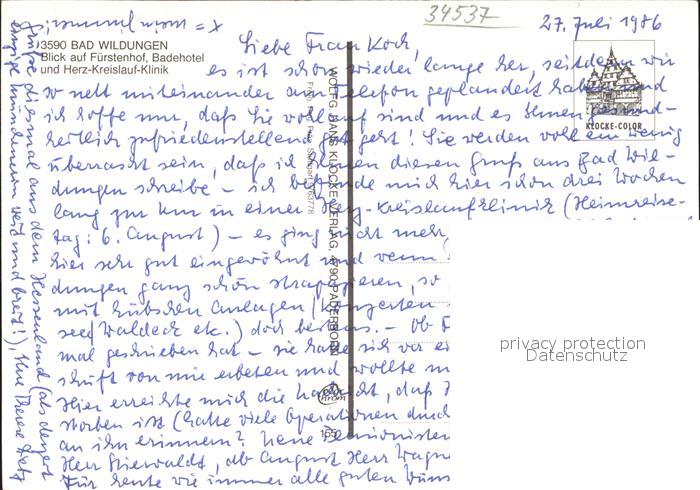 34537
27. Juli 1986
x = mein Zimmer!
3590 BAD WILDUNGEN
Blick auf Fürstenhof, Badehotel
und Herz-Kreislauf-Klinik
KLOCKE-COLOR
WOLFG. HANS KLOCKE VERLAG, 4790 PADERBORN
Liebe Frau Koch,
es ist schon wieder lange her, seitdem wir
so nett miteinander am Telefon geplaudert haben und
ich hoffe nur, daß Sie wohlauf sind und es Ihnen gesund-
heitlich zufriedenstellend geht! Sie werden wohl ein wenig
überrascht sein, daß ich Ihnen diesen Gruß aus Bad Wil-
dungen schreibe - ich befinde mich hier schon drei Wochen
lang zur Kur in einer Herz-Kreislaufklinik (Heimreise-
tag: 6. August) - es ging nicht mehr,
hier sehr gut eingewöhnt und wenn
dungen ganz schön strapazieren, so
mit hübschen Anlagen (Konzerten
see, Waldeck etc.) doch bestens. - Ob
mal geschrieben hat - sie hatte sich vor
schrift von mir erbeten und wollte
Hier erreichte mich die Nachricht, daß
storben ist (hatte viele Operationen
an ihn erinnern? Neue Pensionisten
Herr ab August Herr
Für heute wie immer alle guten
Grüße diesmal aus dem Hessenland (als derzeit
einzige weit und breit!), Ihre
privacy protection
Datenschutz